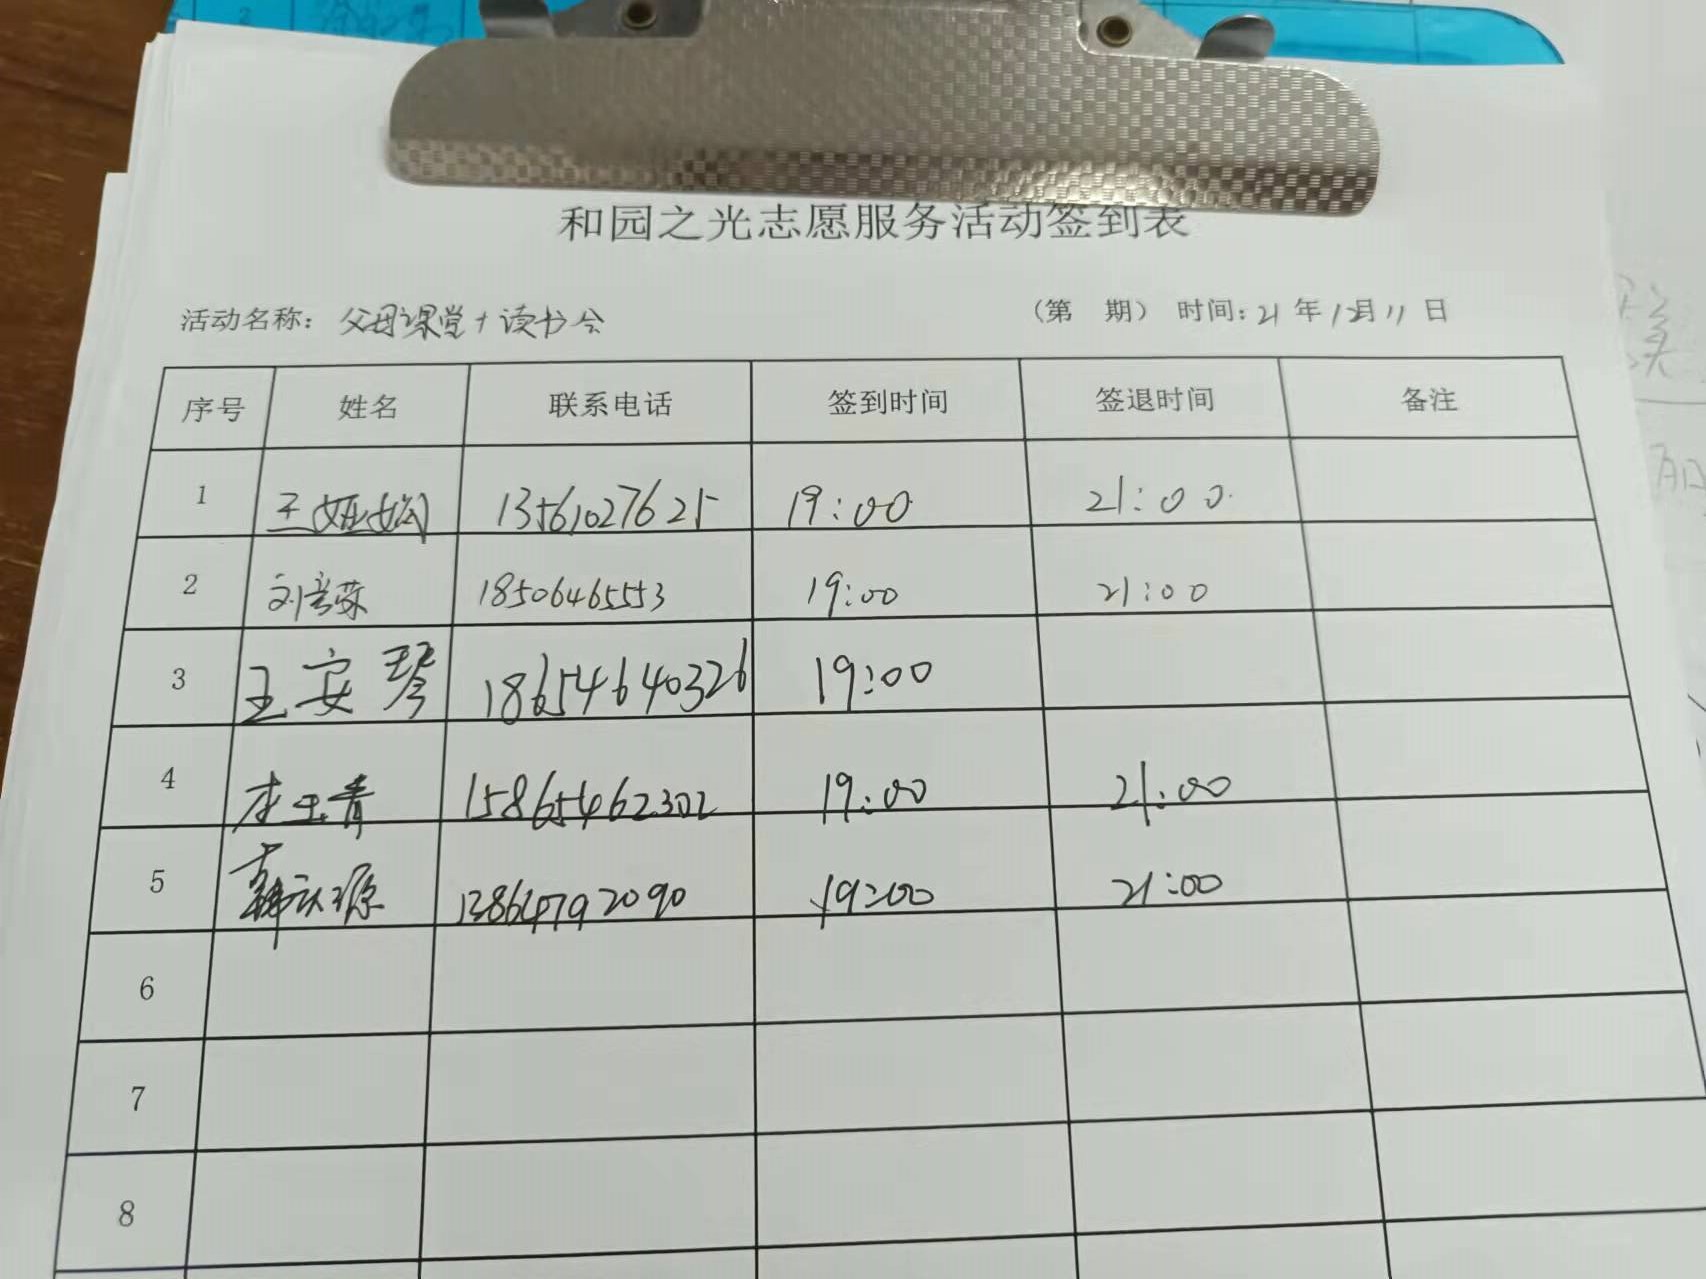 和园之光志愿服务活动签到表
活动名称：父母课堂+读书会 （第 期） 时间：21年12月11日
序号 姓名 联系电话 签到时间 签退时间 备注
1 王娅娟 13561027625 19:00 21:00
2 刘 18506465553 19:00 21:00
3 王安琴 18654640326 19:00
4 李玉青 15865462302 19:00 21:00
5 韩 13864792090 19:00 21:00
6
7
8